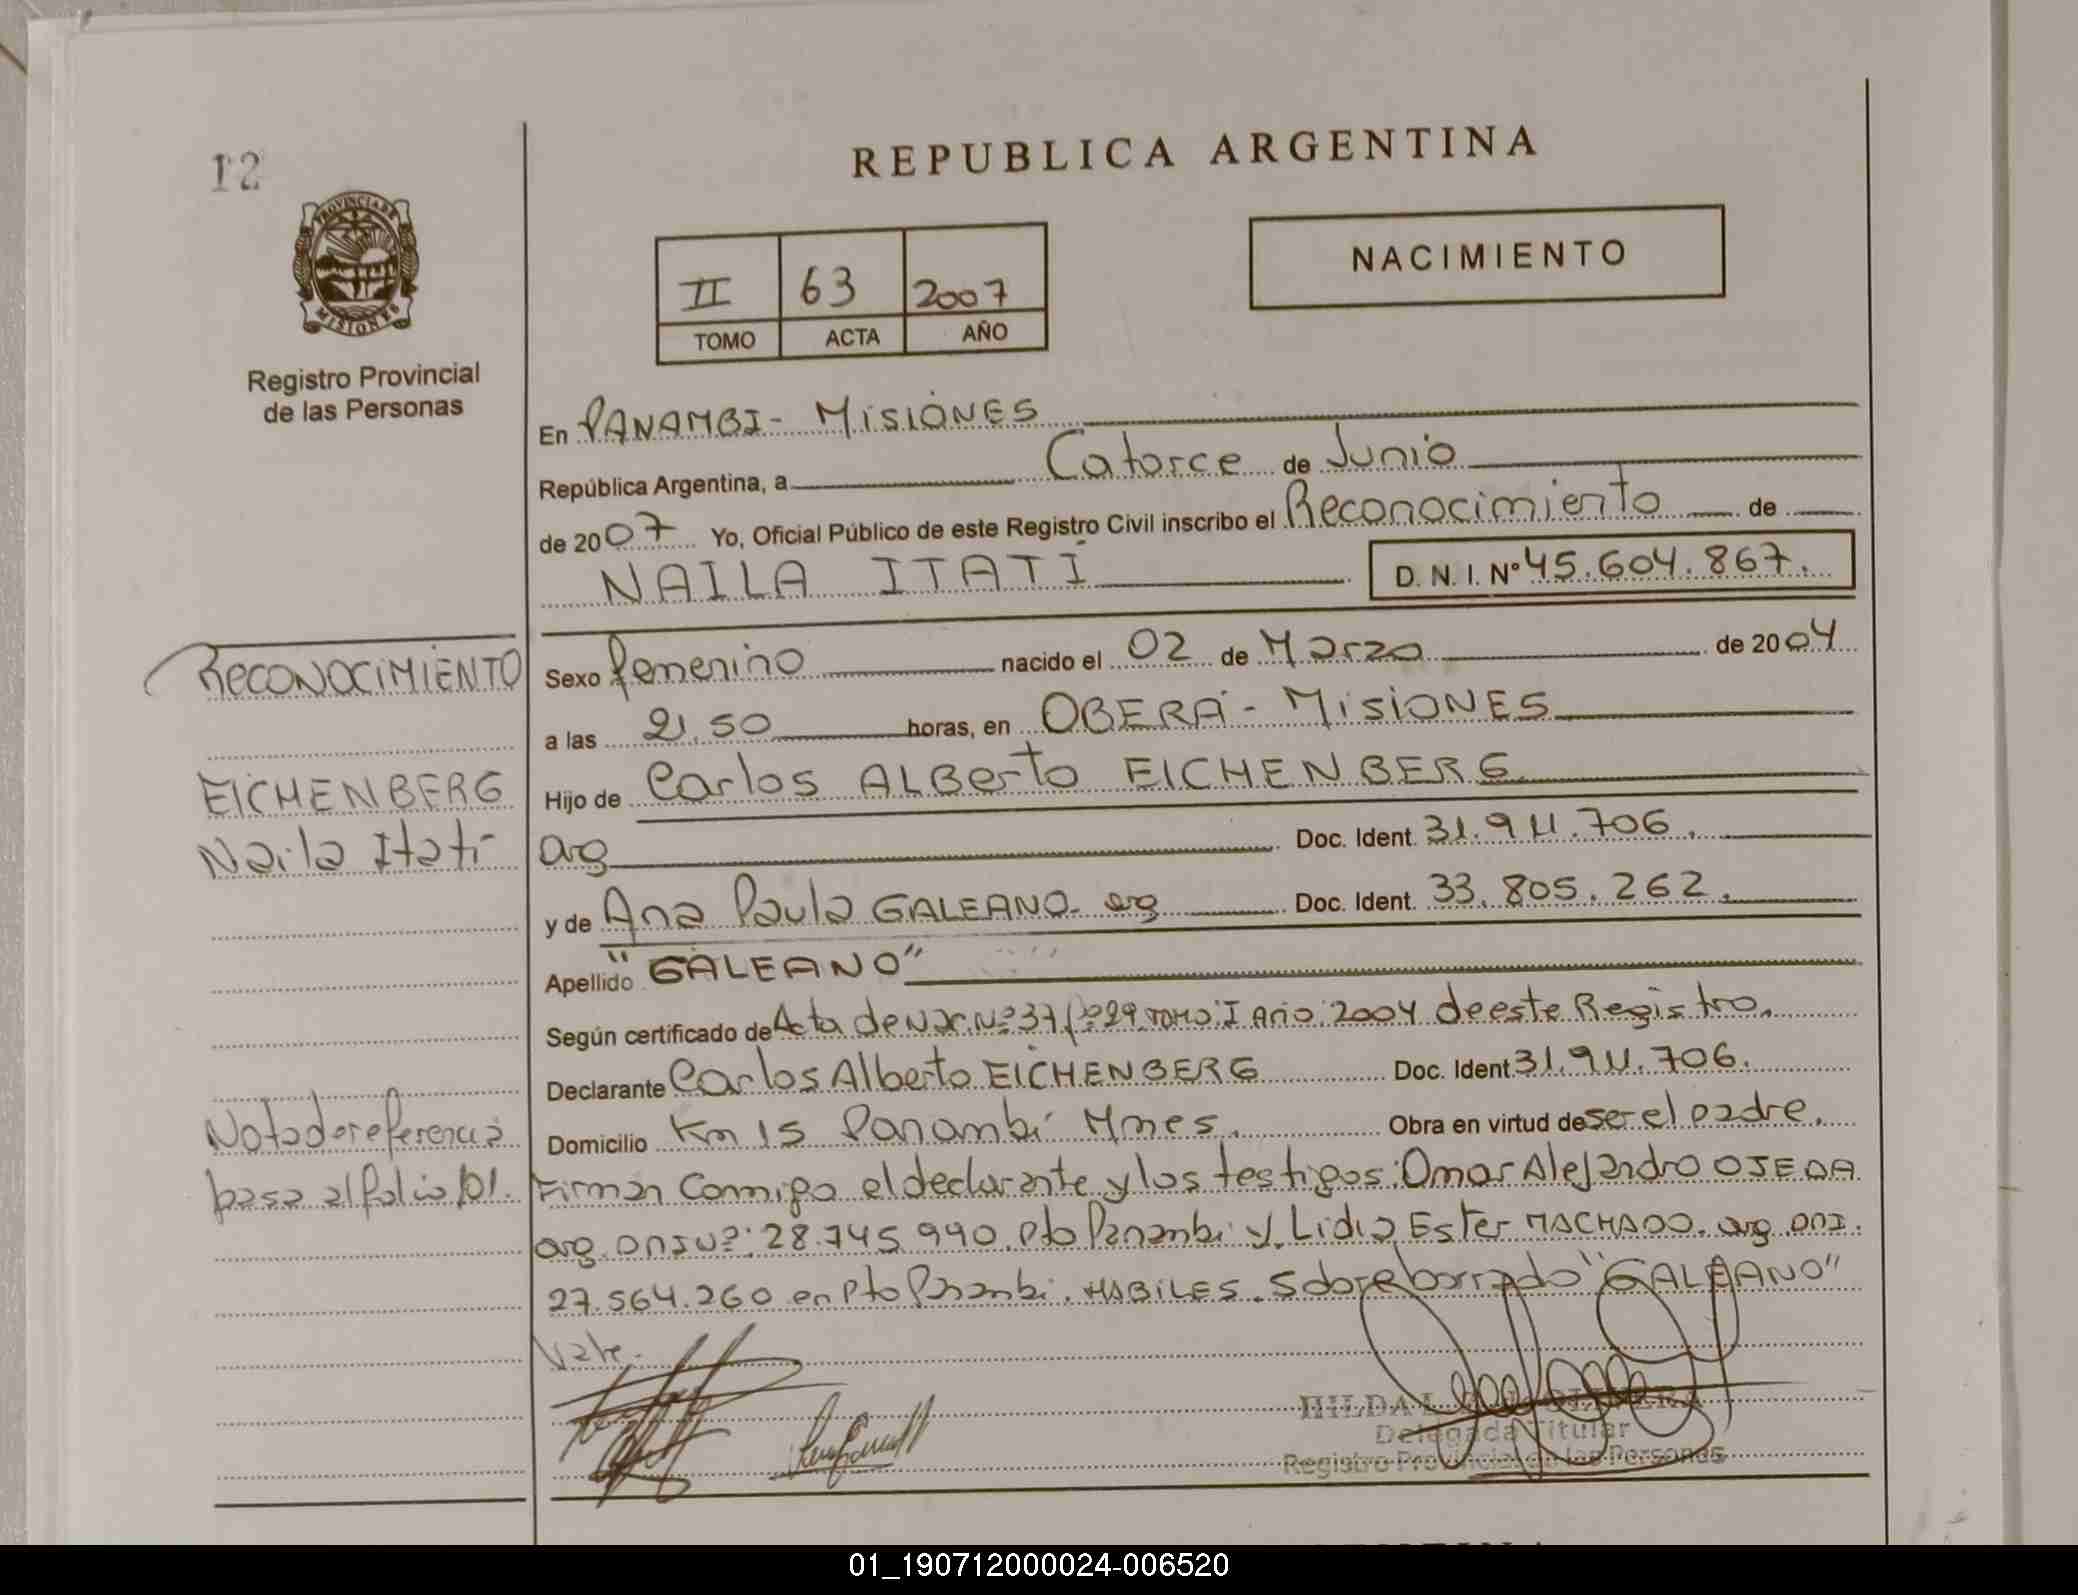 12
REPUBLICA ARGENTINA
NACIMIENTO
II 63 2007
TOMO ACTA AÑO
PROVINCIA DE
MISIONES
Registro Provincial
de las Personas
En PANAMBI - MISIONES
República Argentina, a Catorce de Junio
de 2007 Yo, Oficial Público de este Registro Civil inscribo el Reconocimiento de
NAILA ITATÍ D. N. I. Nº 45.604.867.
Sexo femenino nacido el 02 de Marzo de 2004
a las 21.50 horas, en OBERÁ - MISIONES
Hijo de Carlos ALBerto EICHENBERG
arg Doc. Ident. 31.911.706.
y de Ana Paula GALEANO- arg Doc. Ident. 33.805.262.
Apellido "GALEANO"
Según certificado de Acta de Nac. Nº 37 Fº 29 TOMO: I Año: 2004 de este Registro.
Declarante Carlos Alberto EICHENBERG Doc. Ident. 31.911.706.
Domicilio Km 15 Panambí Mnes. Obra en virtud de ser el padre.
Firman Conmigo el declarante y los testigos: Omar Alejandro OJEDA
arg. DNI Nº: 28.745.990. Pto Panambi y Lidia Ester MACHADO. arg. DNI.
27.564.260 en Pto Panambi. HABILES. Sobreborrado "GALEANO"
Vale.
RECONOCIMIENTO
EICHENBERG
Naila Itatí
Nota de referencia
pasa al folio 101.
HILDA
Delegada Titular
Registro Provincial de las Personas
01_190712000024-006520